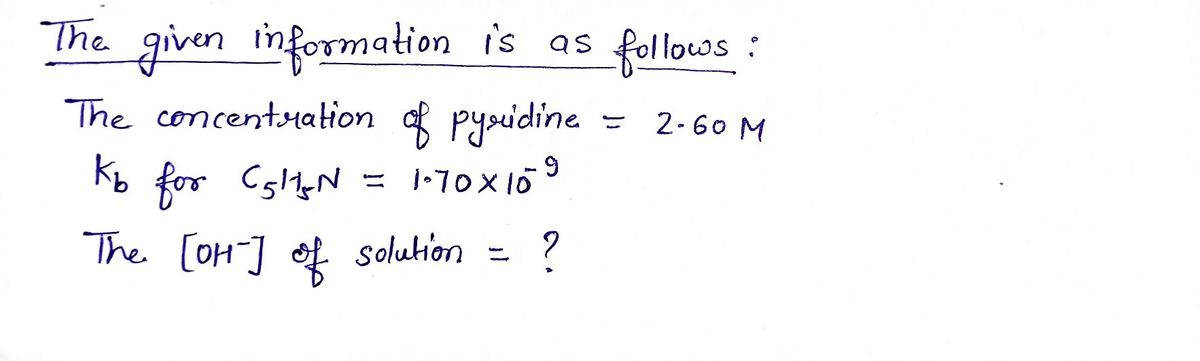 The given information is as follows :
The concentration of pyridine = 2.60 M
Kb for C5H5N = 1.70 × 10⁻⁹
The [OH⁻] of solution = ?